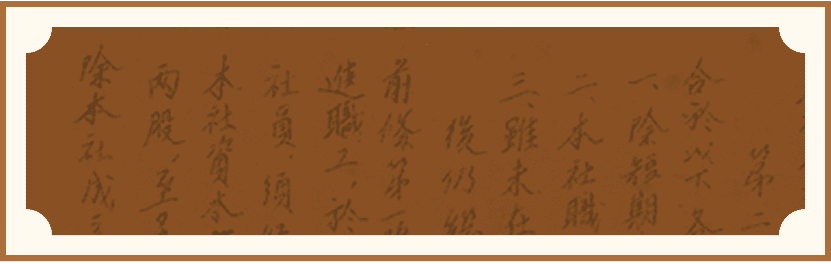 第二
合於以下各
一、除短期
二、本社職
三、雖未在
後仍繼
前條第一項
進職工，於
社員，須經
本社資本
兩股，至多
除本社成立